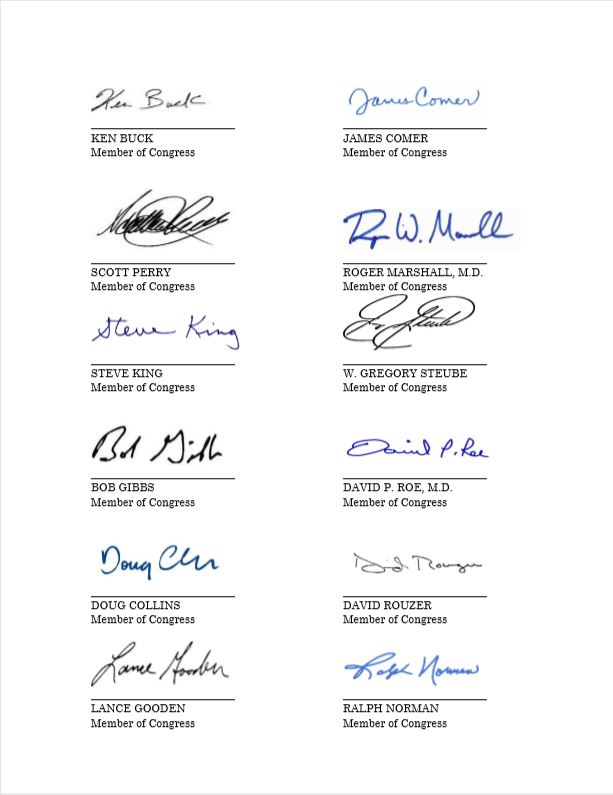 Ken Buck
James Comer
KEN BUCK
JAMES COMER
Member of Congress
Member of Congress
SCOTT PERRY
ROGER MARSHALL, M.D.
Member of Congress
Member of Congress
Steve King
STEVE KING
W. GREGORY STEUBE
Member of Congress
Member of Congress
Bob Gibbs
David P. Roe
BOB GIBBS
DAVID P. ROE, M.D.
Member of Congress
Member of Congress
Doug
David Rouzer
DOUG COLLINS
DAVID ROUZER
Member of Congress
Member of Congress
Lance Gooden
Ralph Norman
LANCE GOODEN
RALPH NORMAN
Member of Congress
Member of Congress